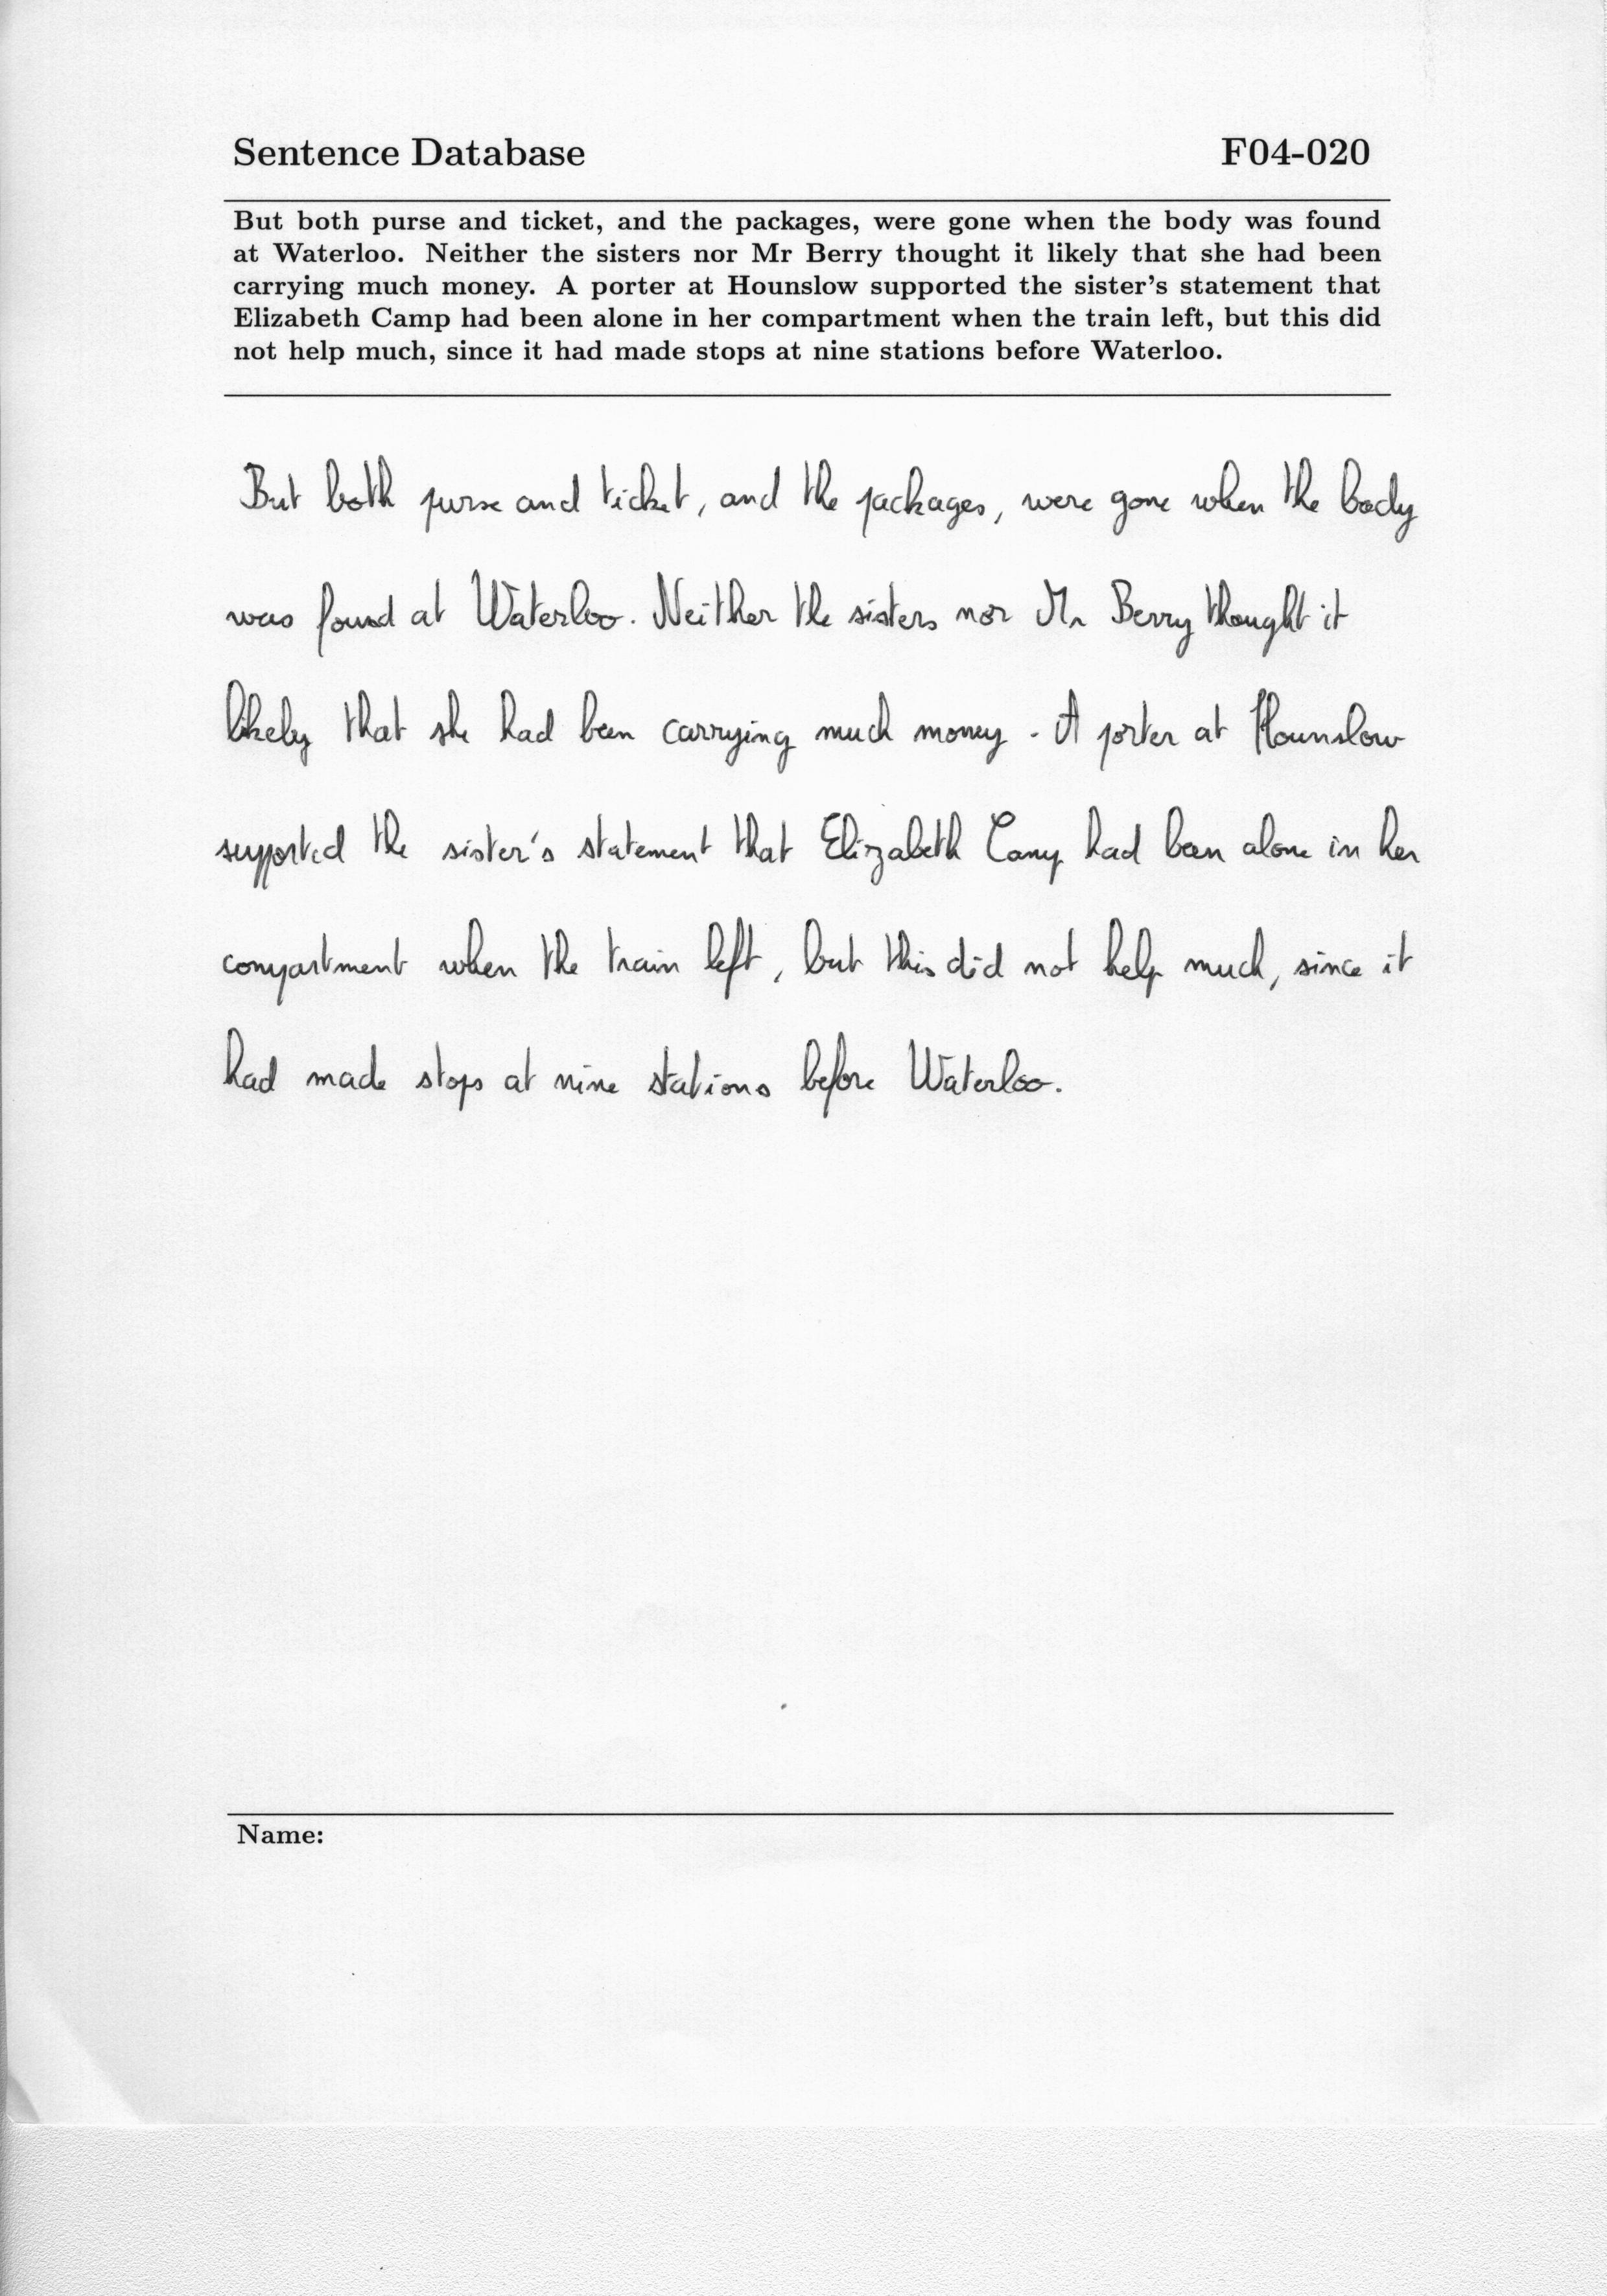 Sentence Database F04-020
But both purse and ticket, and the packages, were gone when the body was found
at Waterloo. Neither the sisters nor Mr Berry thought it likely that she had been
carrying much money. A porter at Hounslow supported the sister's statement that
Elizabeth Camp had been alone in her compartment when the train left, but this did
not help much, since it had made stops at nine stations before Waterloo.
But both purse and ticket, and the packages, were gone when the body
was found at Waterloo. Neither the sisters nor Mr Berry thought it
likely that she had been carrying much money. A porter at Hounslow
supported the sister's statement that Elizabeth Camp had been alone in her
compartment when the train left, but this did not help much, since it
had made stops at nine stations before Waterloo.
Name: